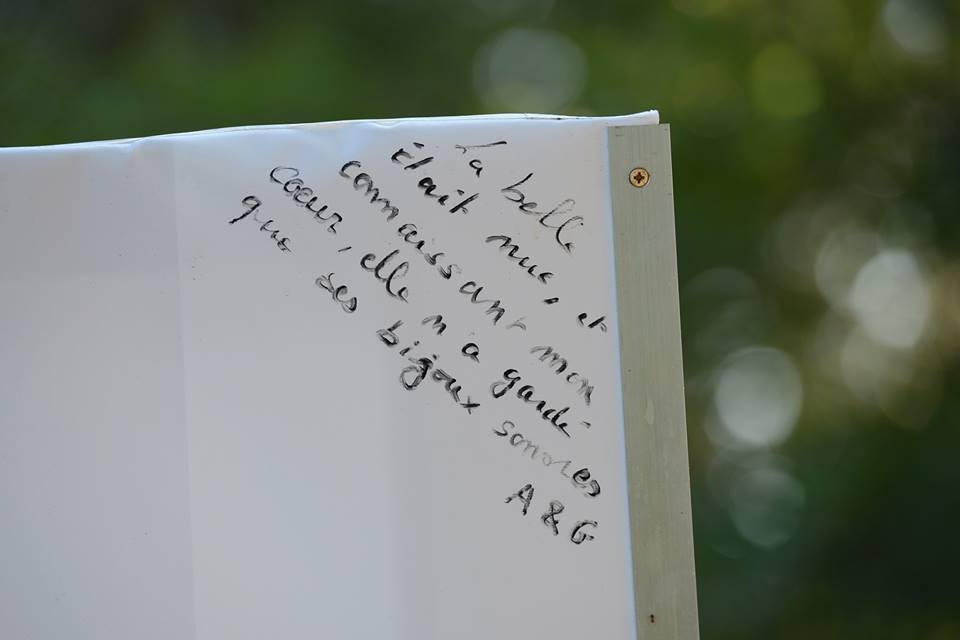 La belle
était nue, et
connaissant mon
coeur, elle n'a gardé
que ses bijoux sonores
A & G